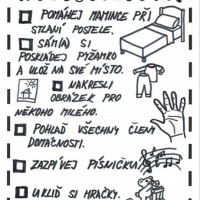 POMÁHEJ MAMINCE PŘI
STLANÍ POSTELE.
SÁM(A) SI
POSKLÁDEJ PYŽAMKO
A ULOŽ NA SVÉ MÍSTO.
NAKRESLI
OBRÁZEK PRO
NĚKOHO MILÉHO.
POHLAĎ VŠECHNY ČLENY
DOMÁCNOSTI.
ZAZPÍVEJ PÍSNIČKU.
UKLIĎ SI HRAČKY.